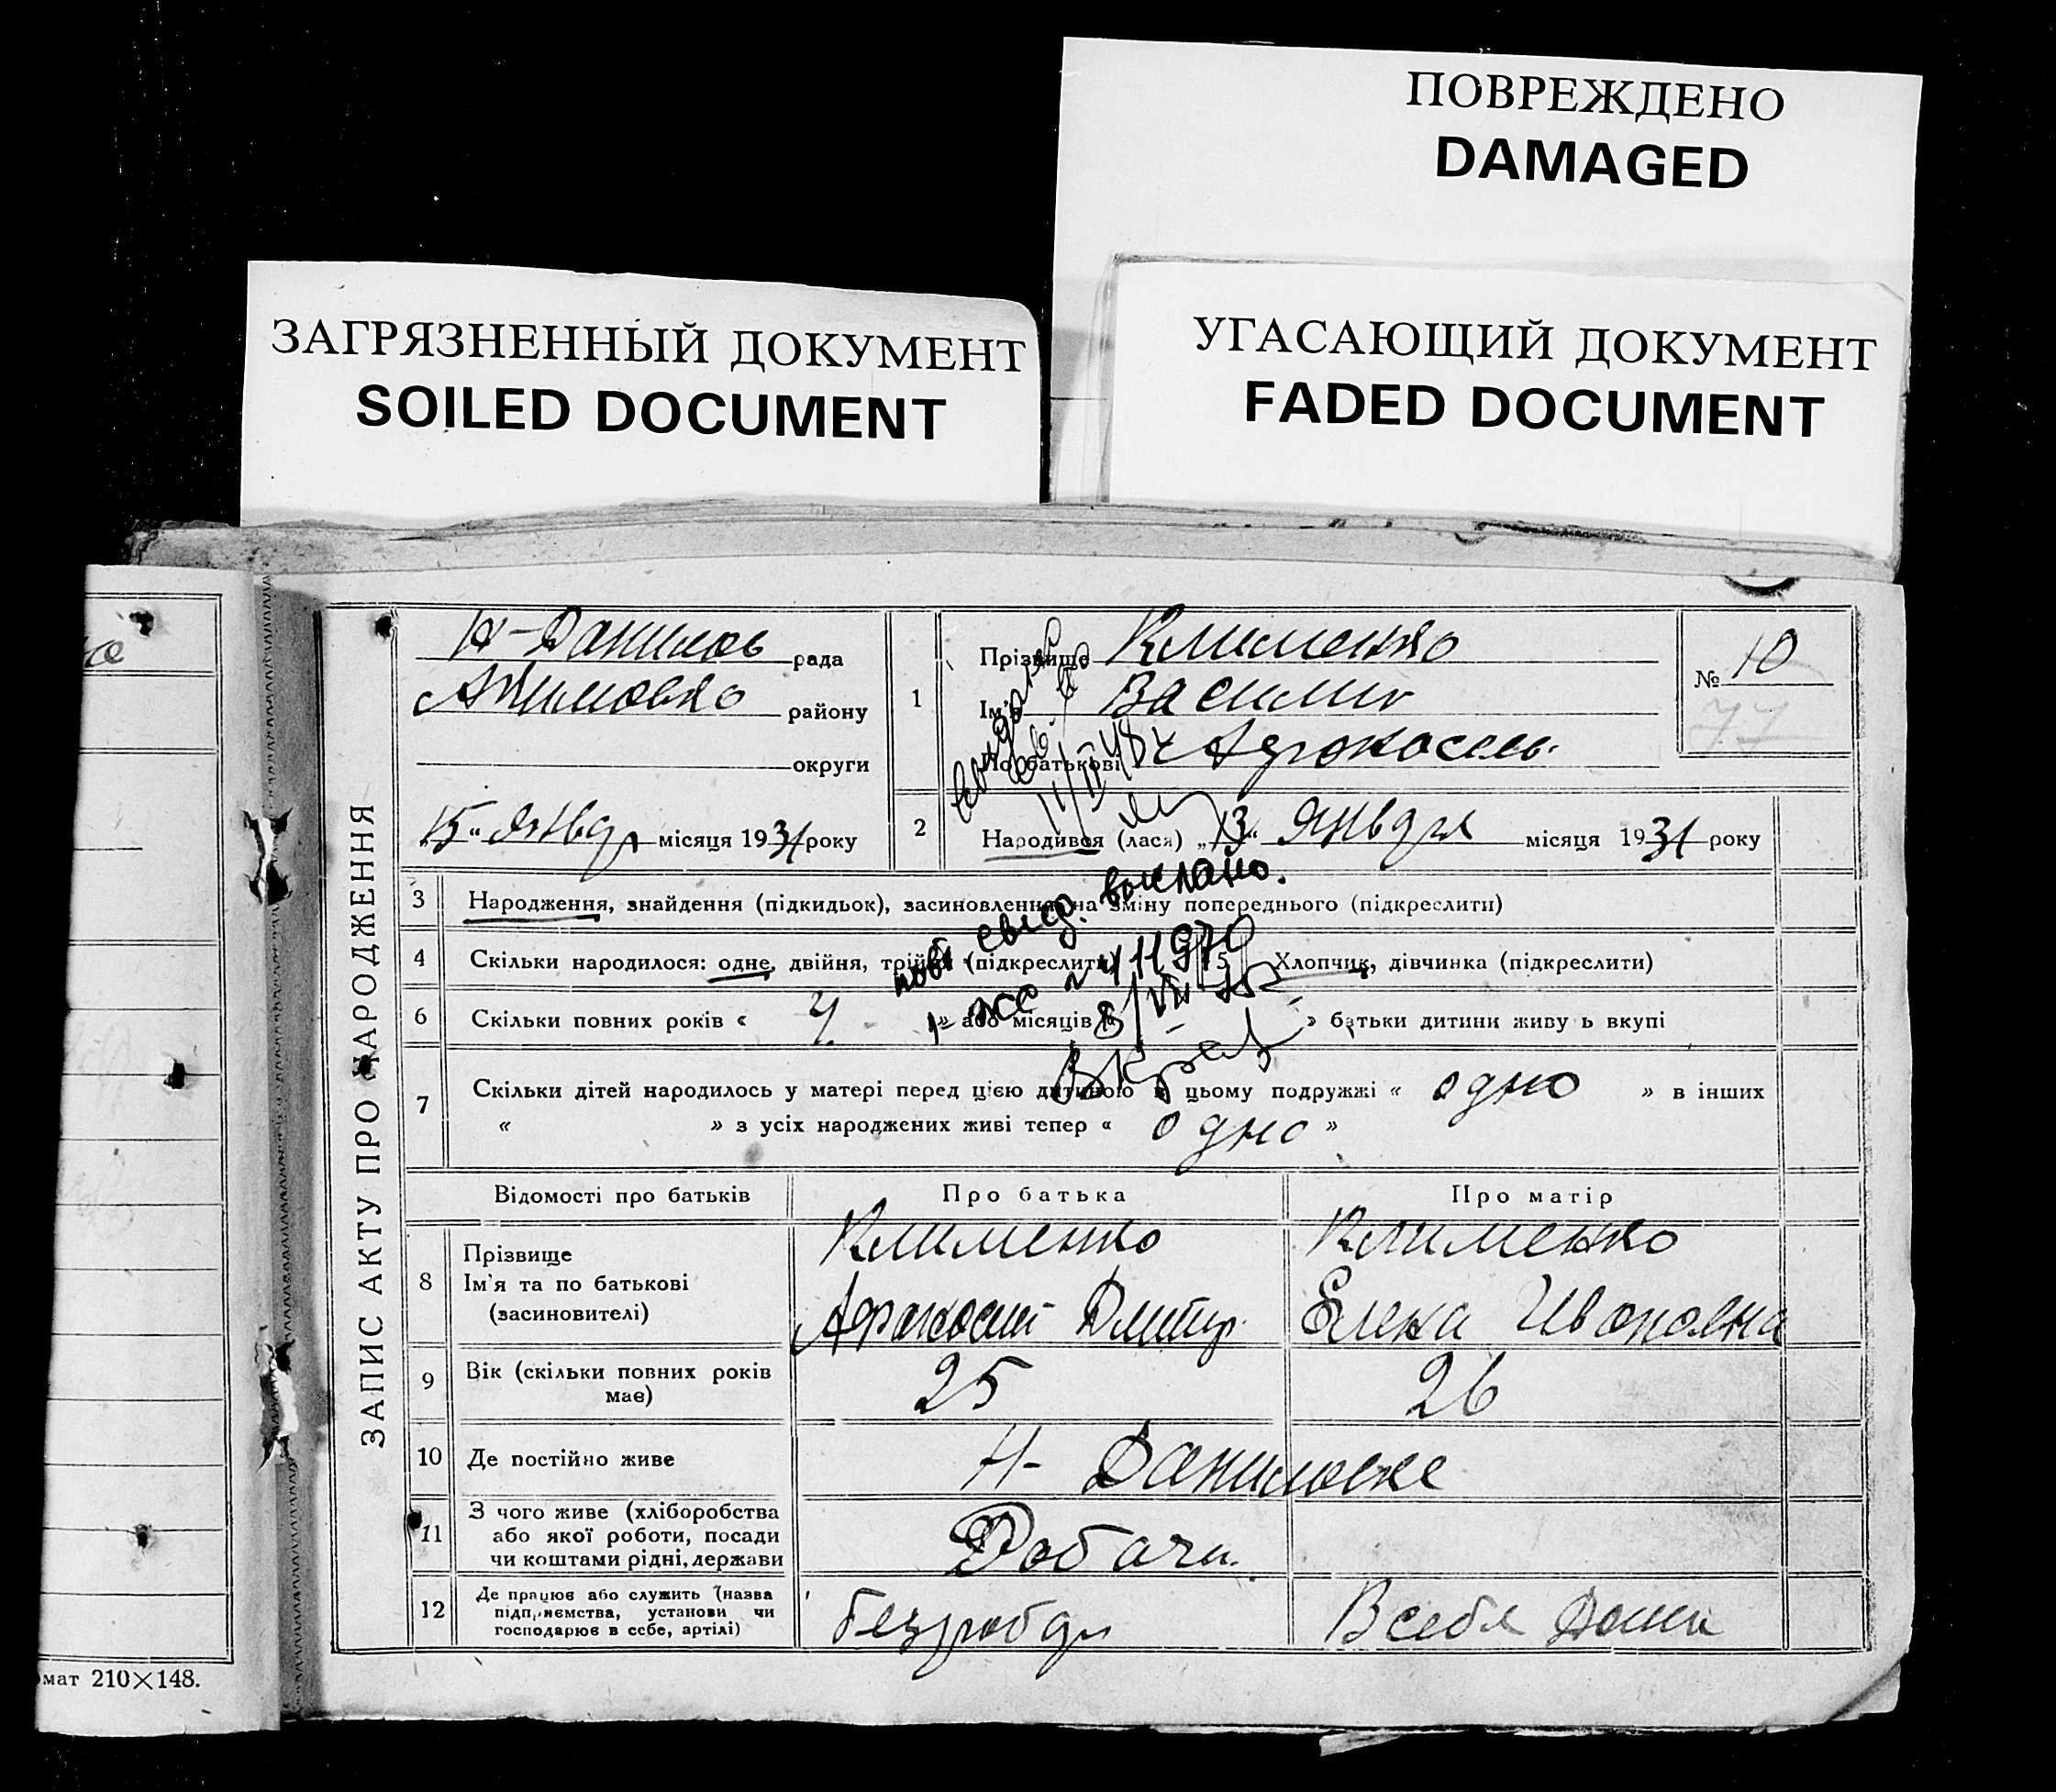 ПОВРЕЖДЕНО
DAMAGED
ЗАГРЯЗНЕННЫЙ ДОКУМЕНТ
SOILED DOCUMENT
УГАСАЮЩИЙ ДОКУМЕНТ
FADED DOCUMENT
мат 210×148.
ЗАПИС АКТУ ПРО НАРОДЖЕННЯ
Н-Данилов рада
Акимовко району
округи
15 " январ місяця 1931 року
1
Прізвище Клименко
Ім'я Василий
По батькові
№ 10
77
2
Народився (лася) „13" января місяця 1931 року
3 Народження, знайдення (підкидьок), засиновлення на зміну попереднього (підкреслити)
нове свид. выслано.
4 Скільки народилося: одне, двійня, трійня (підкреслити)
5 Хлопчик, дівчинка (підкреслити)
6 Скільки повних років « 4 » або місяців « » батьки дитини живуть вкупі
7 Скільки дітей народилось у матері перед цією дитиною в цьому подружжі « одно » в інших
« » з усіх народжених живі тепер « одно »
Відомості про батьків Про батька Про матір
8 Прізвище Клименко Клименко
Ім'я та по батькові
(засиновителі) Афанасий Дмитр. Елена Ивановна
9 Вік (скільки повних років має) 25 26
10 Де постійно живе Н- Даниловке
11 З чого живе (хліборобства
або якої роботи, посади
чи коштами рідні, держави Робочи.
12 Де працює або служить (назва
підприємства, установи чи
господарює в себе, артілі) В себя Дома